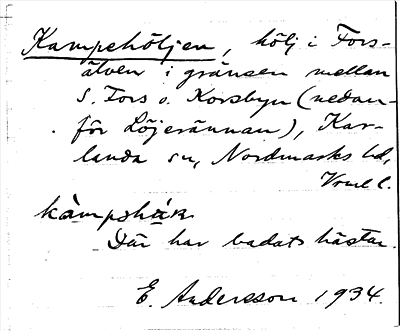 Kampehöljen, hölj i Fors-
älven i gränsen mellan
S. Fors o. Korsbyn (nedan-
för Löjerännan), Kar-
landa sn, Nordmarks hd,
Vrml l.
Där har badats hästar.
E. Andersson 1934.